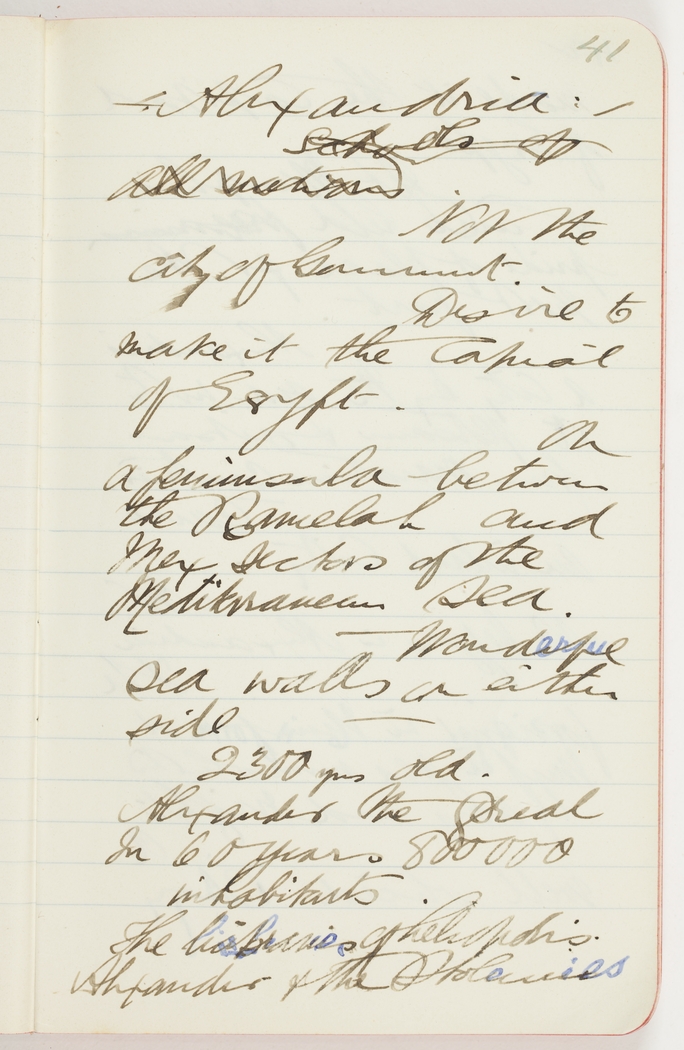 41
- Alexandria : -
schools of
all nations
Not the
city of Government.
Desire to
make it the Capital
of Egypt.
On
a peninsula between
the Ramelah and
Mex sectors of the
Mediterranean Sea.
— Wonderful
sea walls on either
side —
2300 yrs old.
Alexander the Great
In 60 years 800000
inhabitants.
The libraries of heliopolis.
Alexander & the Ptolemies